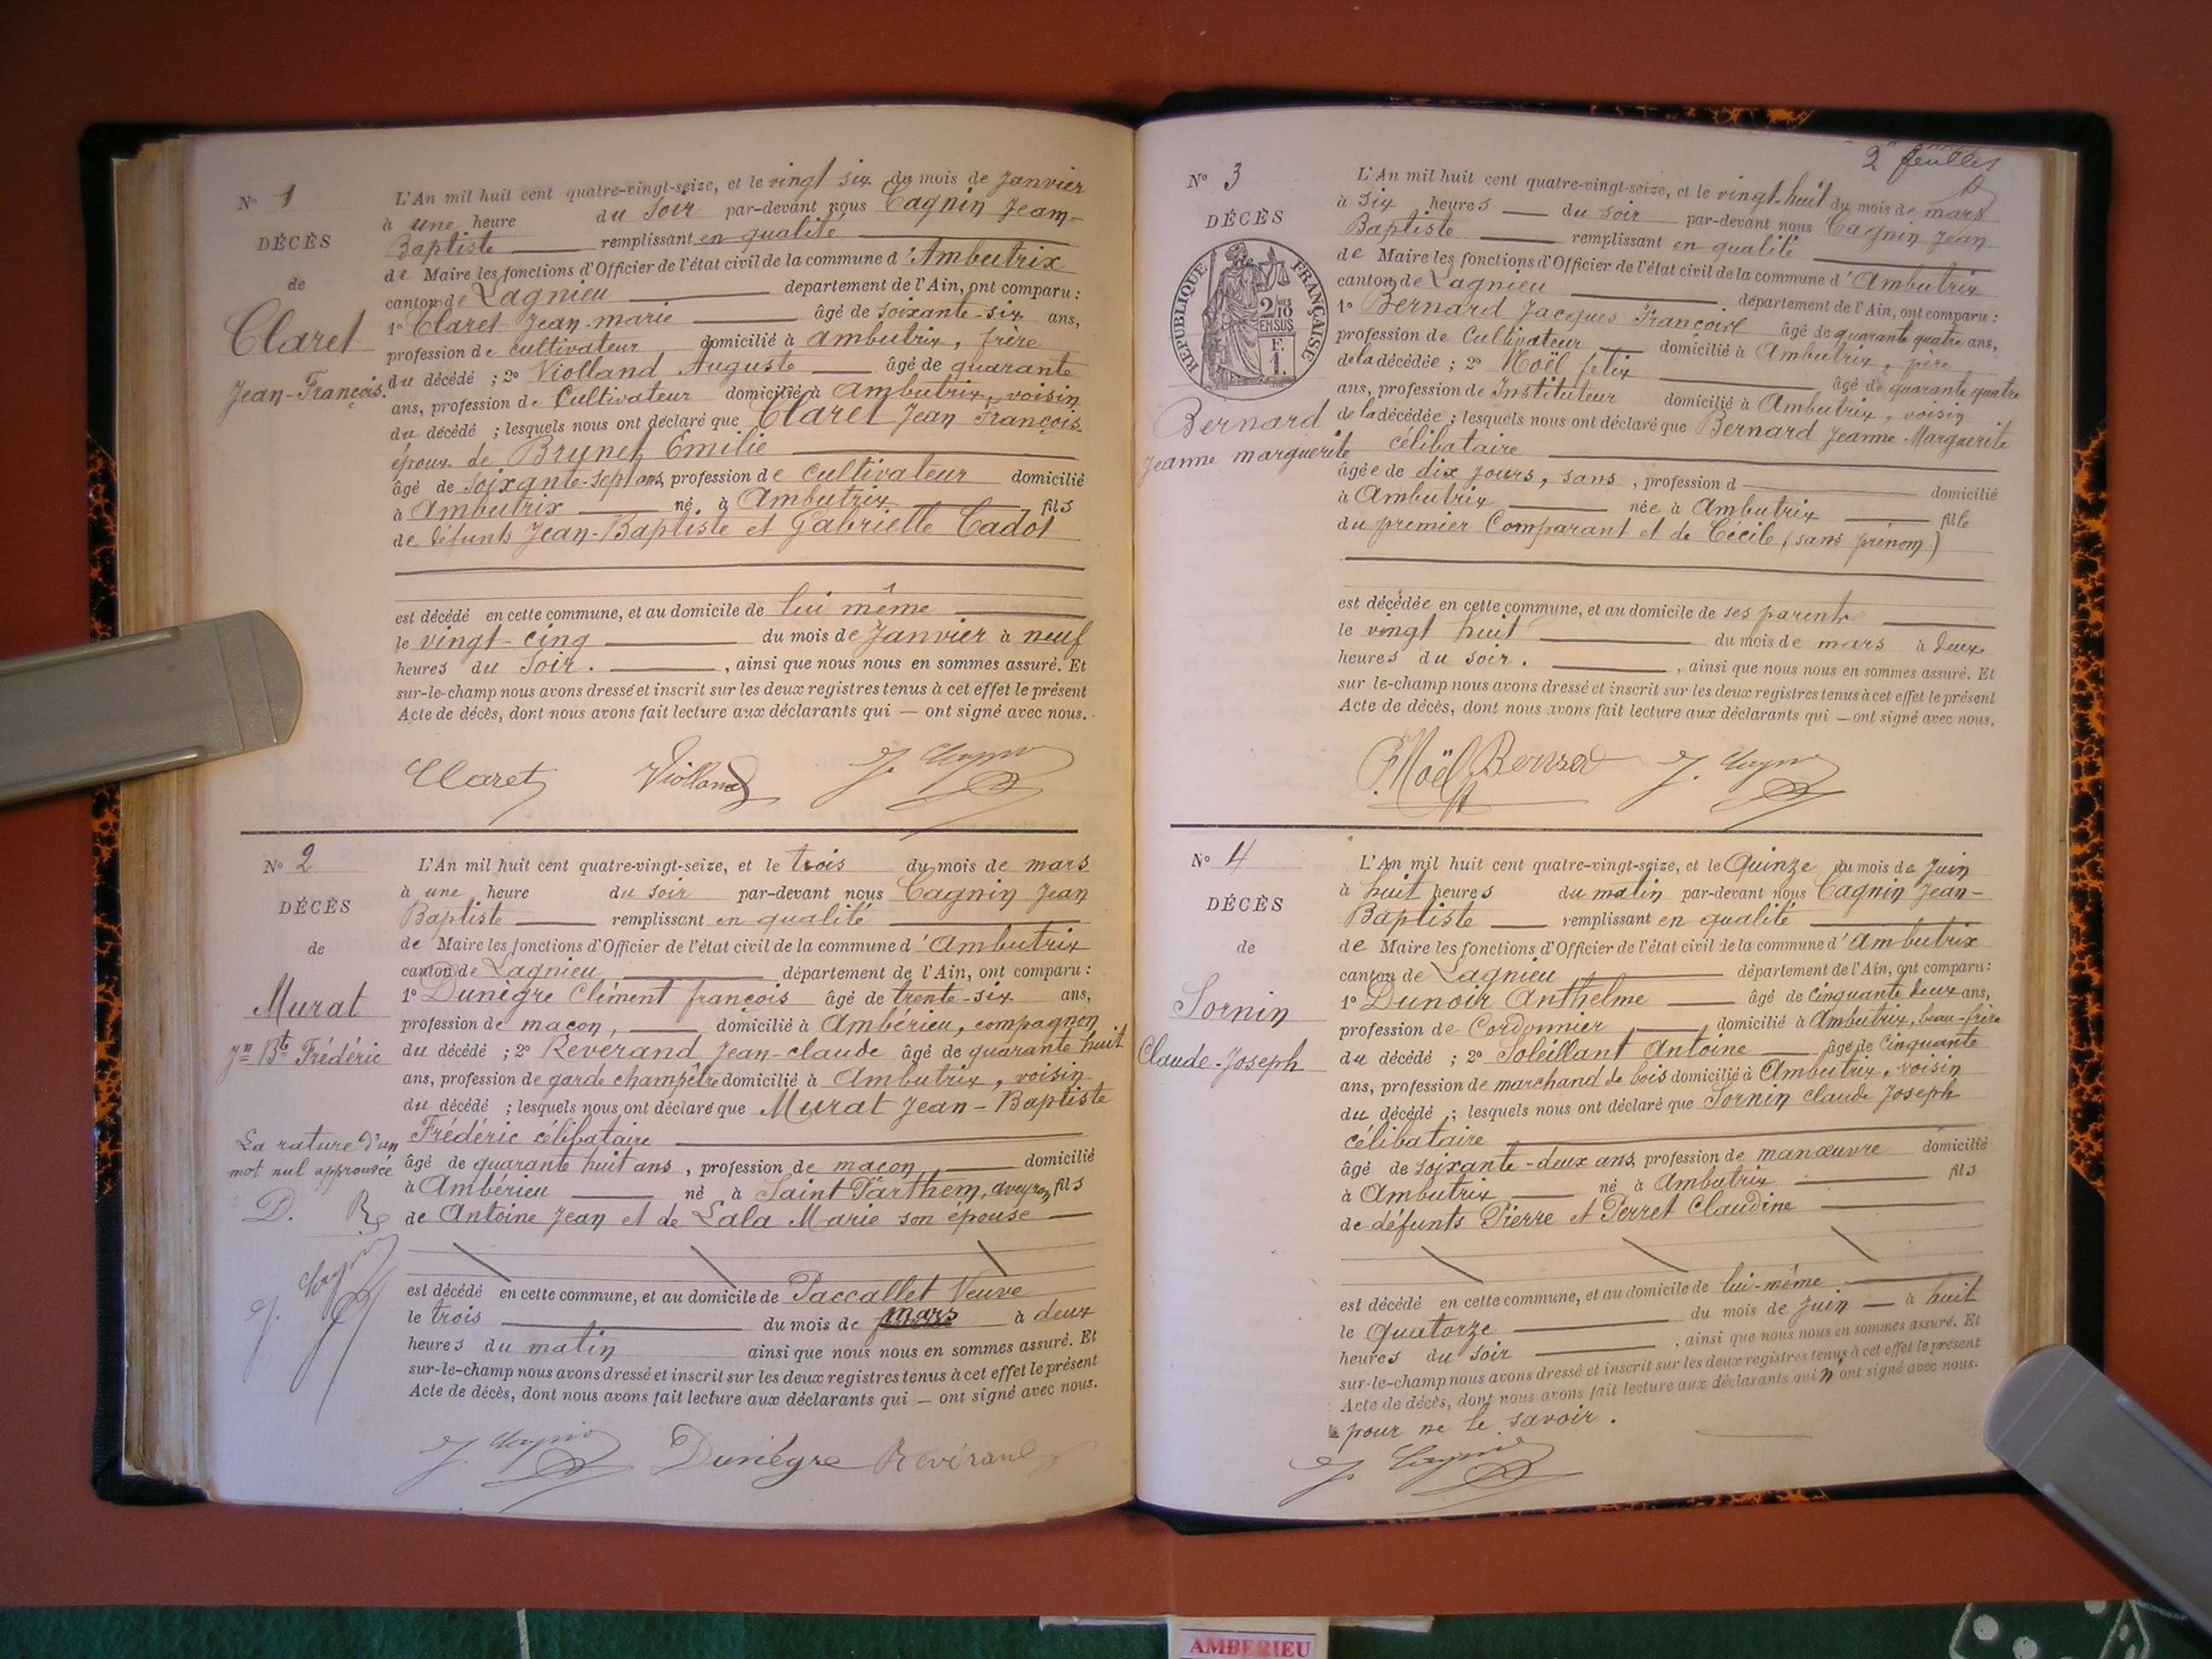 N° 1
DÉCÈS
de
Claret
Jean-François.
L'An mil huit cent quatre-vingt-seize, et le vingt six du mois de Janvier
à une heure du soir par-devant nous Cagnin Jean-
Baptiste remplissant en qualité
de Maire les fonctions d'Officier de l'état civil de la commune d'Ambutrix
canton de Lagnieu département de l'Ain, ont comparu :
1° Claret Jean-marie âgé de soixante-six ans,
profession de cultivateur domicilié à ambutrix, frère
du décédé ; 2° Violland Auguste âgé de quarante
ans, profession de Cultivateur domicilié à Ambutrix, voisin
du décédé ; lesquels nous ont déclaré que Claret Jean François.
époux de Brunet Emilie
âgé de soixante-sept ans, profession de cultivateur domicilié
à Ambutrix né à Ambutrix fils
de défunts Jean-Baptiste et Gabrielle Cadot
est décédé en cette commune, et au domicile de lui même
le vingt-cinq du mois de Janvier à neuf
heures du soir. , ainsi que nous nous en sommes assuré. Et
sur-le-champ nous avons dressé et inscrit sur les deux registres tenus à cet effet le présent
Acte de décès, dont nous avons fait lecture aux déclarants qui — ont signé avec nous.
Claret Violland J. Cagnin
N° 2
DÉCÈS
de
Murat
Jn Bte Frédéric
La rature d'un
mot nul approuvée
D. R
J. Cagnin
L'An mil huit cent quatre-vingt-seize, et le trois du mois de mars
à une heure du soir par-devant nous Cagnin Jean
Baptiste remplissant en qualité
de Maire les fonctions d'Officier de l'état civil de la commune d'Ambutrix
canton de Lagnieu département de l'Ain, ont comparu :
1° Dunègre Clément françois âgé de trente-six ans,
profession de maçon, domicilié à Ambérieu, compagnon
du décédé ; 2° Reverand Jean-claude âgé de quarante huit
ans, profession de garde champêtre domicilié à Ambutrix, voisin
du décédé ; lesquels nous ont déclaré que Murat Jean-Baptiste
Frédéric célibataire
âgé de quarante huit ans, profession de maçon domicilié
à Ambérieu né à Saint Parthem, aveyron fils
de Antoine Jean et de Lala Marie son épouse
est décédé en cette commune, et au domicile de Paccallet Veuve
le trois du mois de mars à deux
heures du matin ainsi que nous nous en sommes assuré. Et
sur-le-champ nous avons dressé et inscrit sur les deux registres tenus à cet effet le présent
Acte de décès, dont nous avons fait lecture aux déclarants qui — ont signé avec nous.
J. Cagnin Dunègre Révérand
2e feuillet
N° 3
DÉCÈS
RÉPUBLIQUE FRANÇAISE
2/10
EN SUS
F.
1.
Bernard
Jeanne marguerite
L'An mil huit cent quatre-vingt-seize, et le vingt-huit du mois de mars
à six heures du soir par-devant nous Cagnin Jean
Baptiste remplissant en qualité
de Maire les fonctions d'Officier de l'état civil de la commune d'Ambutrix
canton de Lagnieu département de l'Ain, ont comparu :
1° Bernard Jacques François âgé de quarante quatre ans,
profession de Cultivateur domicilié à Ambutrix, père
de la décédée ; 2° Noël félix âgé de quarante quatre
ans, profession de Instituteur domicilié à Ambutrix, voisin
de la décédée ; lesquels nous ont déclaré que Bernard Jeanne-Marguerite
célibataire
âgée de dix jours, sans , profession d domicilié
à Ambutrix née à Ambutrix fille
du premier Comparant et de Cécile (sans prénom)
est décédée en cette commune, et au domicile de ses parents
le vingt huit du mois de mars à deux
heures du soir. , ainsi que nous nous en sommes assuré. Et
sur le-champ nous avons dressé et inscrit sur les deux registres tenus à cet effet le présent
Acte de décès, dont nous avons fait lecture aux déclarants qui — ont signé avec nous.
F. Noël Bernard J. Cagnin
N° 4
DÉCÈS
de
Sornin
Claude-Joseph
L'An mil huit cent quatre-vingt-seize, et le Quinze du mois de Juin
à huit heures du matin par-devant nous Cagnin Jean-
Baptiste remplissant en qualité
de Maire les fonctions d'Officier de l'état civil de la commune d'Ambutrix
canton de Lagnieu département de l'Ain, ont comparu:
1° Dunoir Anthelme âgé de Cinquante deux ans,
profession de Cordonnier, domicilié à Ambutrix, beau-frère
du décédé ; 2° Soleillant Antoine âgé de Cinquante
ans, profession de marchand de bois domicilié à Ambutrix, voisin
du décédé ; lesquels nous ont déclaré que Sornin Claude Joseph
célibataire
âgé de soixante-deux ans, profession de manœuvre domicilié
à Ambutrix né à Ambutrix fils
de défunts Pierre et Perret Claudine
est décédé en cette commune, et au domicile de lui-même
le Quatorze du mois de Juin — à huit
heures du soir , ainsi que nous nous en sommes assuré. Et
sur-le-champ nous avons dressé et inscrit sur les deux registres tenus à cet effet le présent
Acte de décès, dont nous avons fait lecture aux déclarants qui n'ont signé avec nous.
pour ne le savoir.
J. Cagnin
AMBERIEU